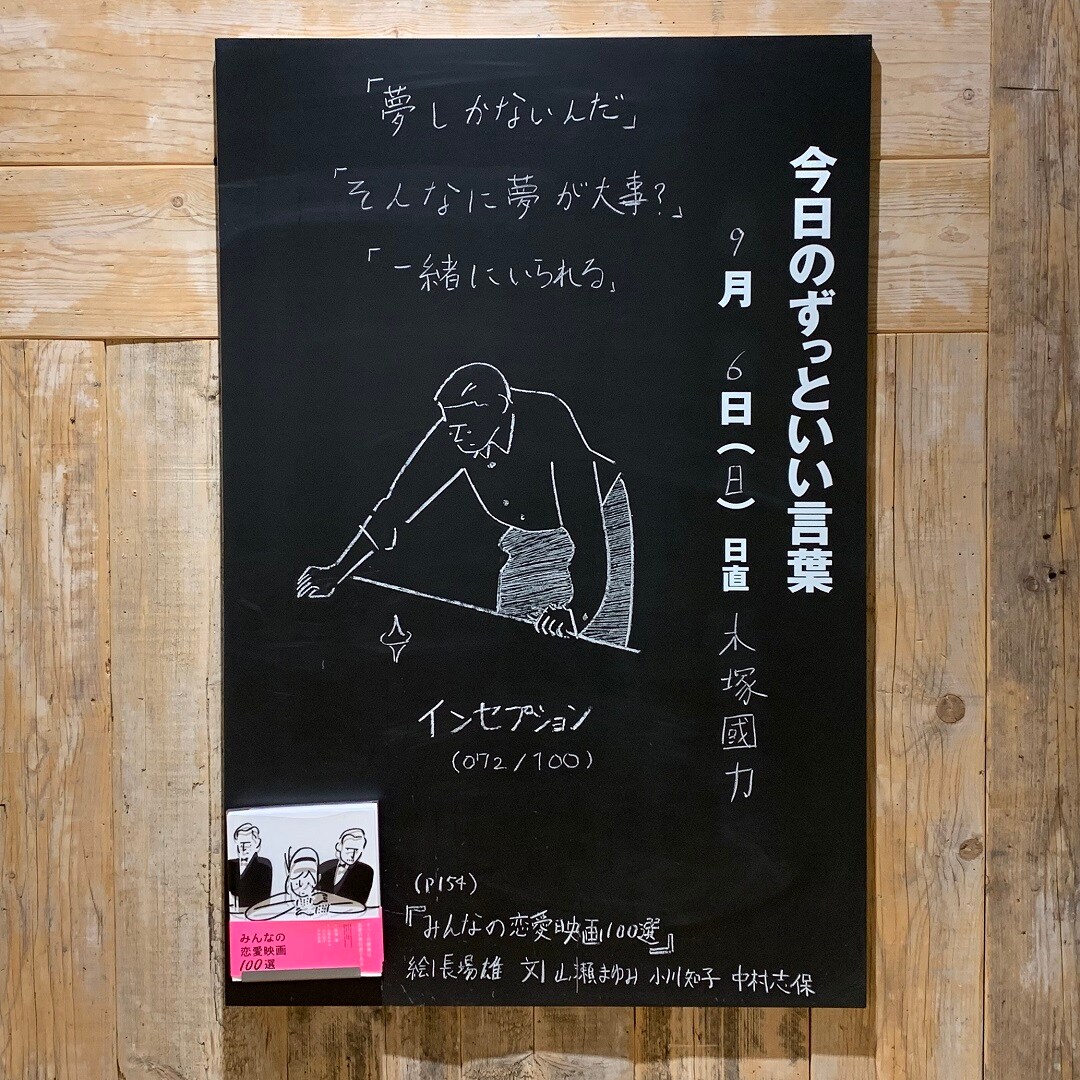 今日のずっといい言葉
9月 6日(日) 日直 木塚國力
「夢しかないんだ」
「そんなに夢が大事?」
「一緒にいられる」
インセプション
(072/100)
(P154)
『みんなの恋愛映画100選』
絵|長場雄 文|山瀬まゆみ 小川知子 中村志保
みんなの
恋愛映画
100選